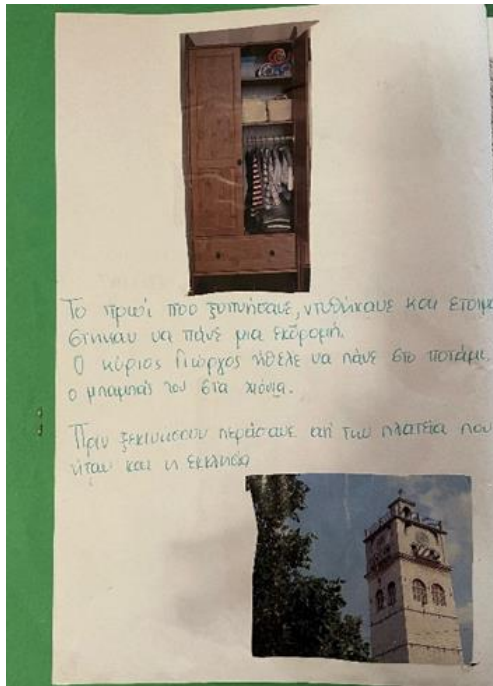 Το πρωί που ξυπνήσανε, ντυθήκανε και ετοιμα
στηκαν να πάνε μια εκδρομή.
Ο κύριος Γιώργος ήθελε να πάνε στο ποτάμι,
ο μπαμπάς του στα χιόνια.
Πριν ξεκινήσουν περάσανε απ την πλατεία που
ήταν και η εκκλησία